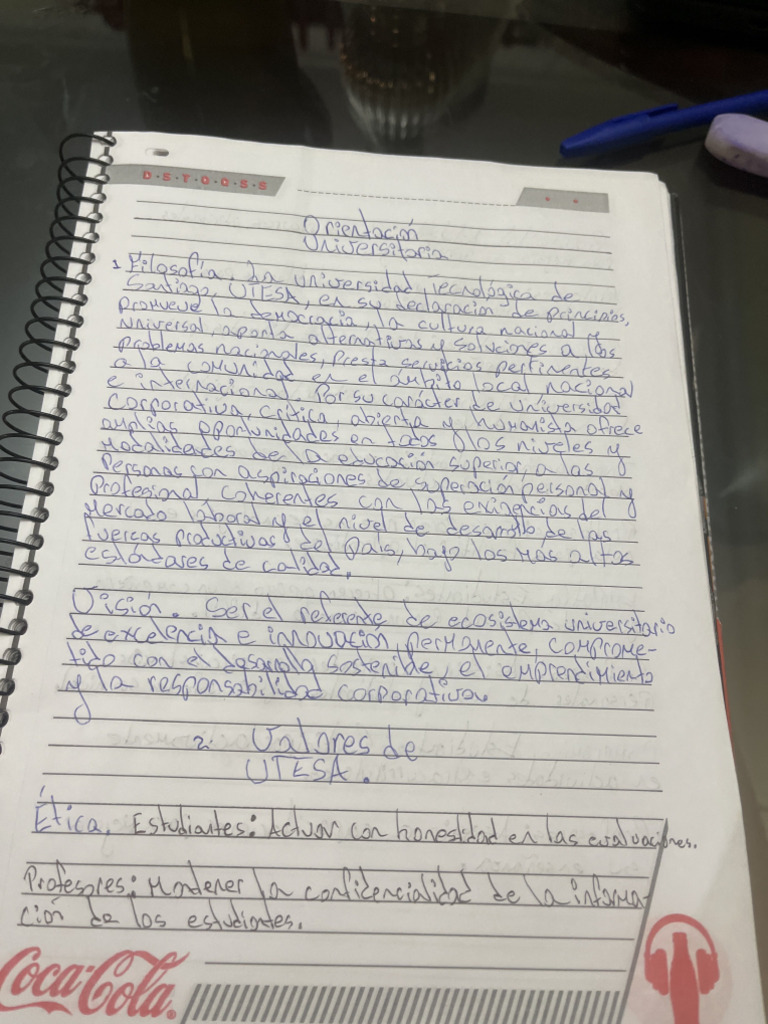 D·S·T·Q·Q·S·S
Orientación
Universitaria
1 Filosofía La universidad tecnológica de
Santiago, UTESA, en su declaración de principios,
promueve la democracia, la cultura nacional y
universal, aporta alternativas y soluciones a los
problemas nacionales, Presta servicios pertinentes
a la comunidad en el ámbito local nacional
e internacional. Por su carácter de universidad
corporativa, crítica, abierta y humanista ofrece
amplias oportunidades en todos los niveles y
modalidades de la educación superior, a las
personas con aspiraciones de superación personal y
Profesional coherentes con las exigencias del
mercado laboral y el nivel de desarrollo de las
fuercas productivas del país, bajo los más altos
estándares de calidad.
Visión. Ser el referente de ecosistema universitario
de excelencia e innovación, permanente, comprome-
tido con el desarrollo sostenible, el emprendimiento
y la responsabilidad corporativa.
2. Valores de
UTESA.
Ética. Estudiantes: Actuar con honestidad en las evaluaciones.
Profesores: Mantener la confidencialidad de la informa-
ción de los estudiantes.
Coca-Cola